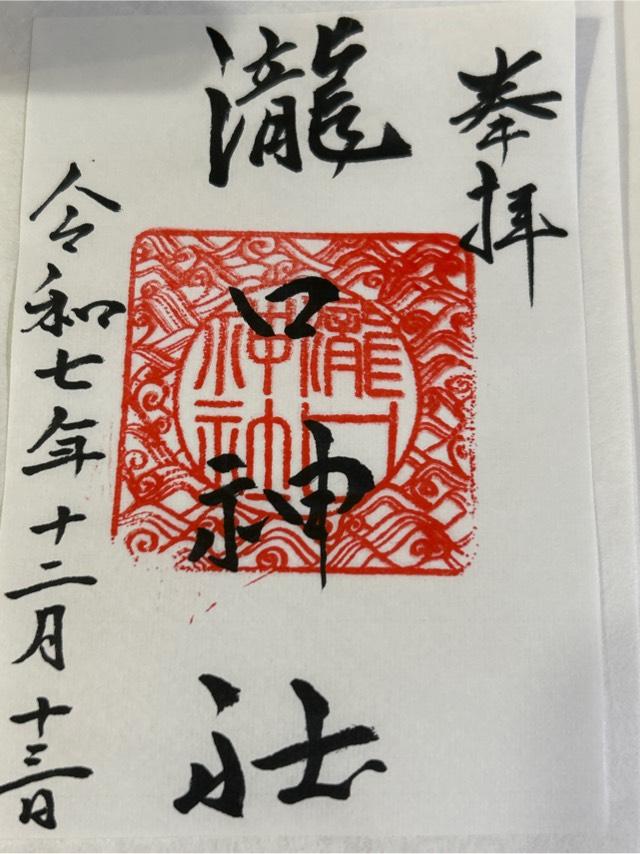 奉拝
瀧口神社
瀧口神社
令和七年十二月十三日